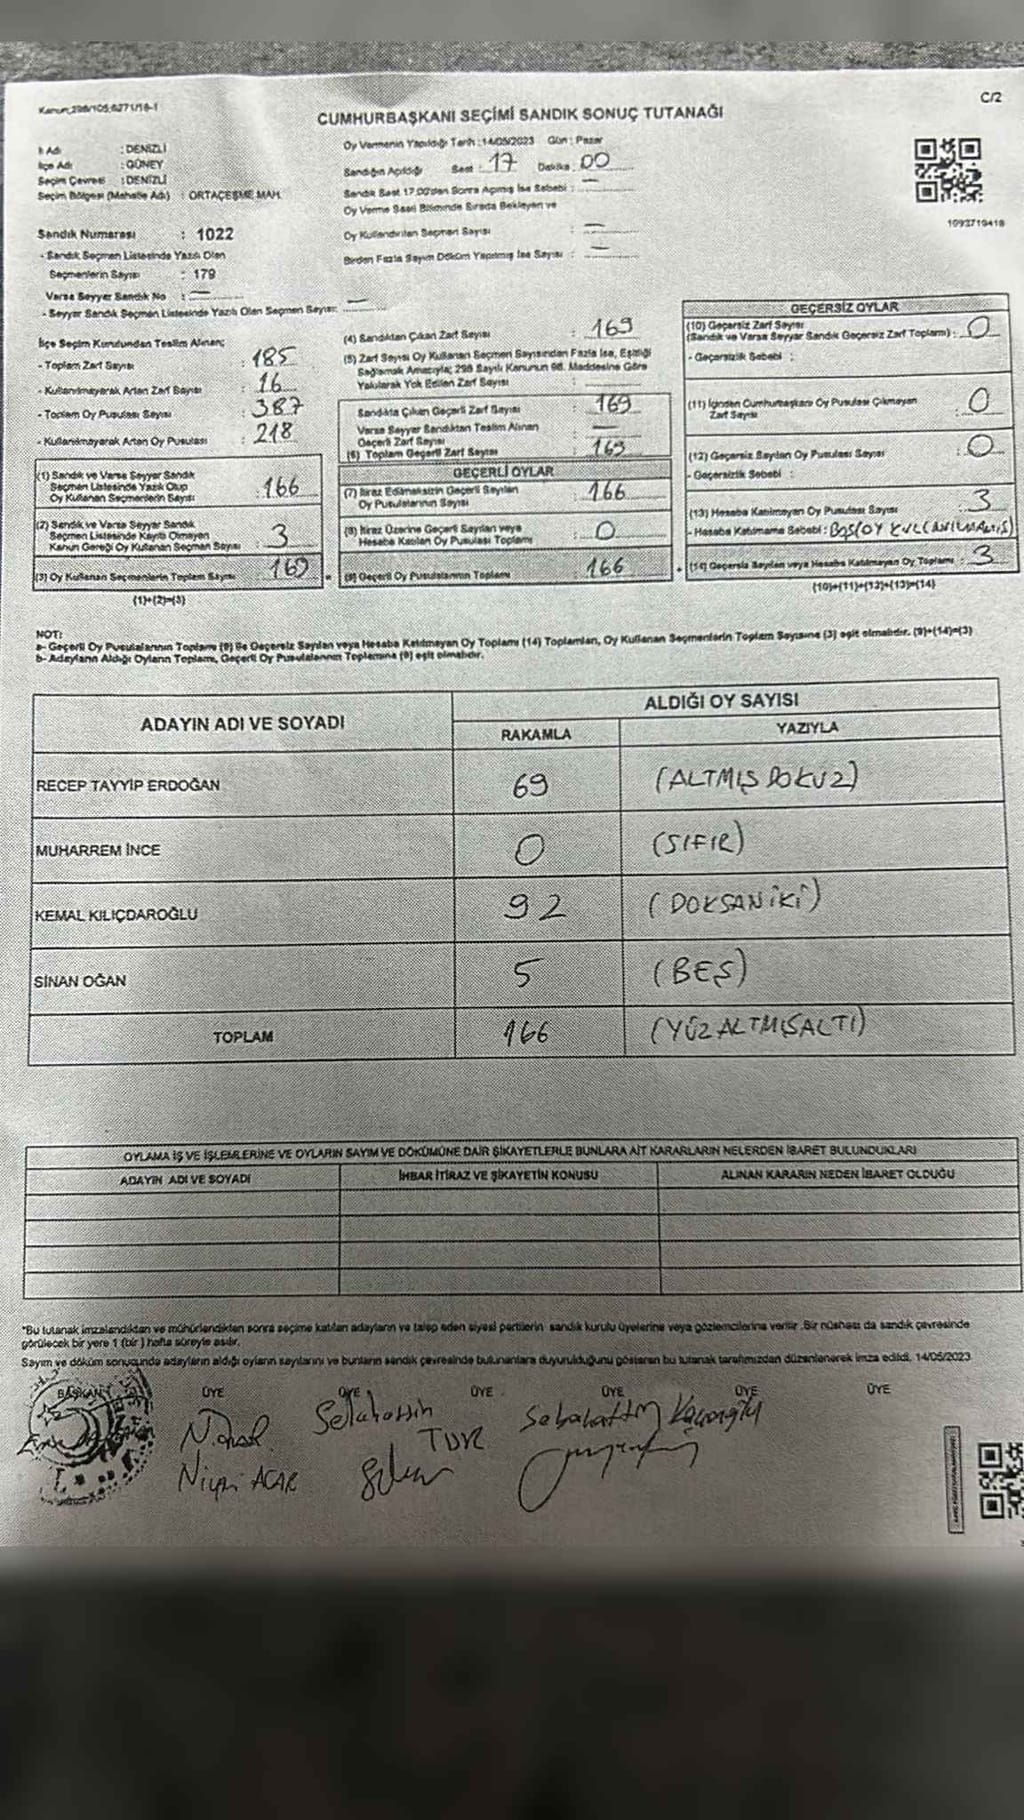 Kanun;298/105;6271/18-1
C/2
CUMHURBAŞKANI SEÇİMİ SANDIK SONUÇ TUTANAĞI
İl Adı : DENİZLİ
İlçe Adı : GÜNEY
Seçim Çevresi : DENİZLİ
Seçim Bölgesi (Mahalle Adı) : ORTAÇEŞME MAH.
Oy Vermenin Yapıldığı Tarih : 14/05/2023 Gün : Pazar
Sandığın Açıldığı Saat : 17 Dakika : 00
Sandık Saat 17:00'den Sonra Açılmış İse Sebebi : —
Oy Verme Saati Bitiminde Sırada Bekleyen ve
Oy Kullandırılan Seçmen Sayısı : —
Birden Fazla Sayım Döküm Yapılmış İse Sayısı : —
1093719418
Sandık Numarası : 1022
- Sandık Seçmen Listesinde Yazılı Olan
Seçmenlerin Sayısı : 179
Varsa Seyyar Sandık No : —
- Seyyar Sandık Seçmen Listesinde Yazılı Olan Seçmen Sayısı: —
İlçe Seçim Kurulundan Teslim Alınan;
- Toplam Zarf Sayısı : 185
- Kullanılmayarak Artan Zarf Sayısı : 16
- Toplam Oy Pusulası Sayısı : 387
- Kullanılmayarak Artan Oy Pusulası : 218
(1) Sandık ve Varsa Seyyar Sandık
Seçmen Listesinde Yazılı Olup
Oy Kullanan Seçmenlerin Sayısı : 166
(2) Sandık ve Varsa Seyyar Sandık
Seçmen Listesinde Kayıtlı Olmayan
Kanun Gereği Oy Kullanan Seçmen Sayısı 3
(3) Oy Kullanan Seçmenlerin Toplam Sayısı : 169
(1)+(2)=(3)
(4) Sandıktan Çıkan Zarf Sayısı : 169
(5) Zarf Sayısı Oy Kullanan Seçmen Sayısından Fazla İse, Eşitliği
Sağlamak Amacıyla; 298 Sayılı Kanunun 98. Maddesine Göre
Yakılarak Yok Edilen Zarf Sayısı :
Sandıkta Çıkan Geçerli Zarf Sayısı : 169
Varsa Seyyar Sandıktan Teslim Alınan
Geçerli Zarf Sayısı : —
(6) Toplam Geçerli Zarf Sayısı : 169
GEÇERLİ OYLAR
(7) İtiraz Edilmeksizin Geçerli Sayılan
Oy Pusulalarının Sayısı : 166
(8) İtiraz Üzerine Geçerli Sayılan veya
Hesaba Katılan Oy Pusulası Toplamı : 0
(9) Geçerli Oy Pusulalarının Toplamı : 166
GEÇERSİZ OYLAR
(10) Geçersiz Zarf Sayısı
(Sandık ve Varsa Seyyar Sandık Geçersiz Zarf Toplamı) : 0
- Geçersizlik Sebebi :
(11) İçinden Cumhurbaşkanı Oy Pusulası Çıkmayan
Zarf Sayısı : 0
(12) Geçersiz Sayılan Oy Pusulası Sayısı : 0
- Geçersizlik Sebebi :
(13) Hesaba Katılmayan Oy Pusulası Sayısı : 3
- Hesaba Katılmama Sebebi : BOŞ(OY KULLANILMAMIŞ)
(14) Geçersiz Sayılan veya Hesaba Katılmayan Oy Toplamı : 3
(10)+(11)+(12)+(13)=(14)
NOT:
a- Geçerli Oy Pusulalarının Toplamı (9) ile Geçersiz Sayılan veya Hesaba Katılmayan Oy Toplamı (14) Toplamları, Oy Kullanan Seçmenlerin Toplam Sayısına (3) eşit olmalıdır. (9)+(14)=(3)
b- Adayların Aldığı Oyların Toplamı, Geçerli Oy Pusulalarının Toplamına (9) eşit olmalıdır.
ADAYIN ADI VE SOYADI
ALDIĞI OY SAYISI
RAKAMLA YAZIYLA
RECEP TAYYİP ERDOĞAN 69 (ALTMIŞ DOKUZ)
MUHARREM İNCE 0 (SIFIR)
KEMAL KILIÇDAROĞLU 92 (DOKSAN İKİ)
SİNAN OĞAN 5 (BEŞ)
TOPLAM 166 (YÜZ ALTMIŞALTI)
OYLAMA İŞ VE İŞLEMLERİNE VE OYLARIN SAYIM VE DÖKÜMÜNE DAİR ŞİKAYETLERLE BUNLARA AİT KARARLARIN NELERDEN İBARET BULUNDUKLARI
ADAYIN ADI VE SOYADI İHBAR İTİRAZ VE ŞİKAYETİN KONUSU ALINAN KARARIN NEDEN İBARET OLDUĞU
*Bu tutanak imzalandıktan ve mühürlendikten sonra seçime katılan adayların ve talep eden siyasi partilerin sandık kurulu üyelerine veya gözlemcilerine verilir .Bir nüshası da sandık çevresinde
görülecek bir yere 1 (bir ) hafta süreyle asılır.
Sayım ve döküm sonucunda adayların aldığı oyların sayılarını ve bunların sandık çevresinde bulunanlara duyurulduğunu gösteren bu tutanak tarafımızdan düzenlenerek imza edildi. 14/05/2023
BAŞKAN ÜYE ÜYE ÜYE ÜYE ÜYE ÜYE
Selahattin
TUR
Niyazi ACAR
Sabahattin